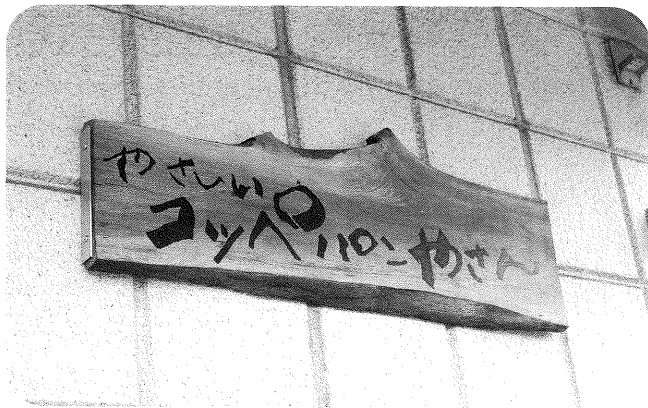 やさしい
コッペパンやさん